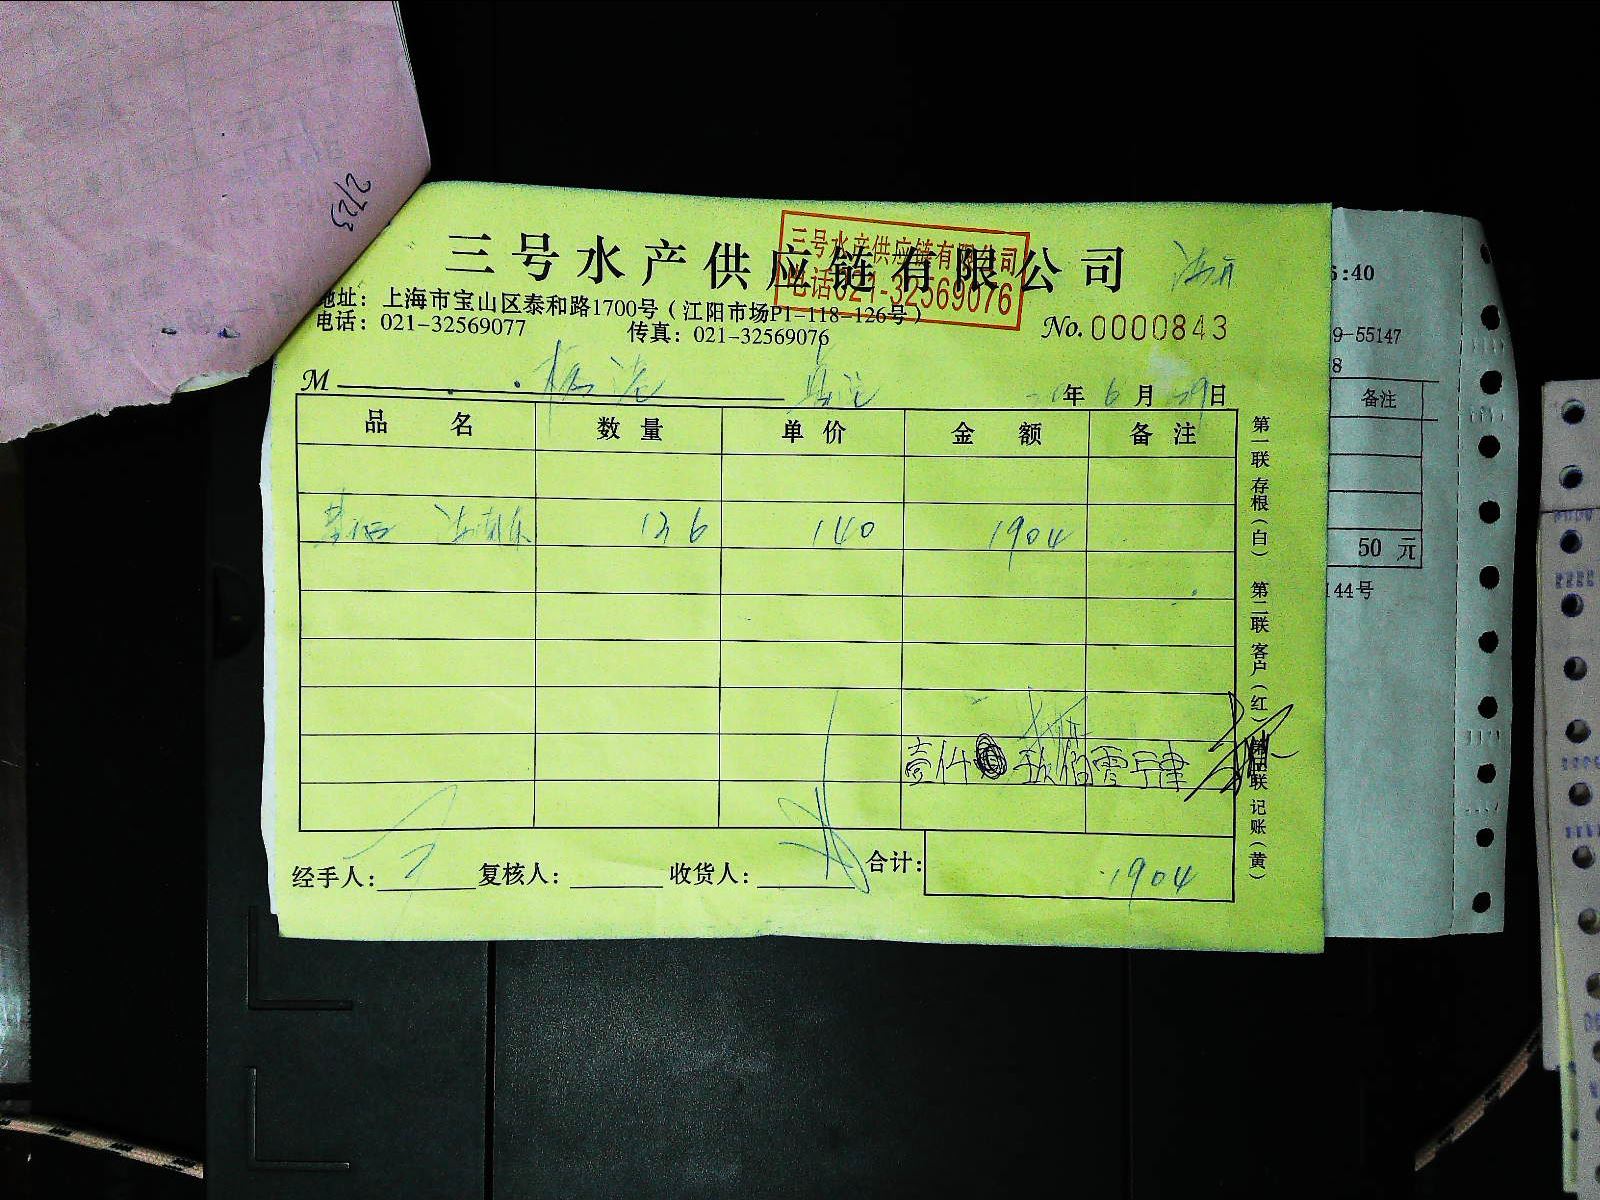 2723
三号水产供应链有限公司
三号水产供应链有限公司
电话021-32569076
地址：上海市宝山区泰和路1700号（江阳市场P1-118-126号）
电话：021-32569077 传真：021-32569076
No.0000843
M 年 6 月 29 日
品 名 数 量 单 价 金 额 备 注
136 140 1904
壹仟 玖佰零
经手人： 复核人： 收货人： 合计： 1904
第一联 存根（白） 第二联 客户（红） 第三联 记账（黄）
5:40
9-55147
8
备注
50 元
144号